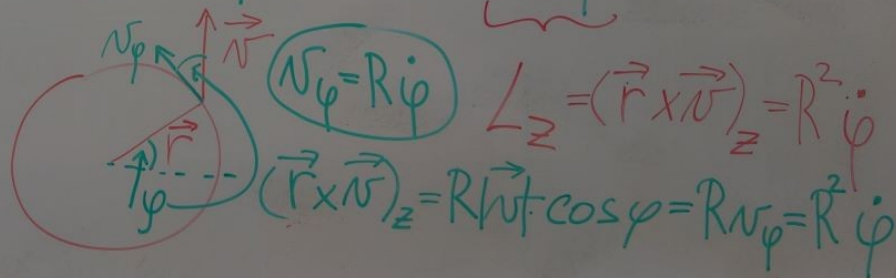 v_φ v⃗ v_φ = Rφ̇ L_z = (r⃗ × v⃗)_z = R²φ̇
r⃗
φ (r⃗ × v⃗)_z = R|v⃗| · cos φ = Rv_φ = R²φ̇